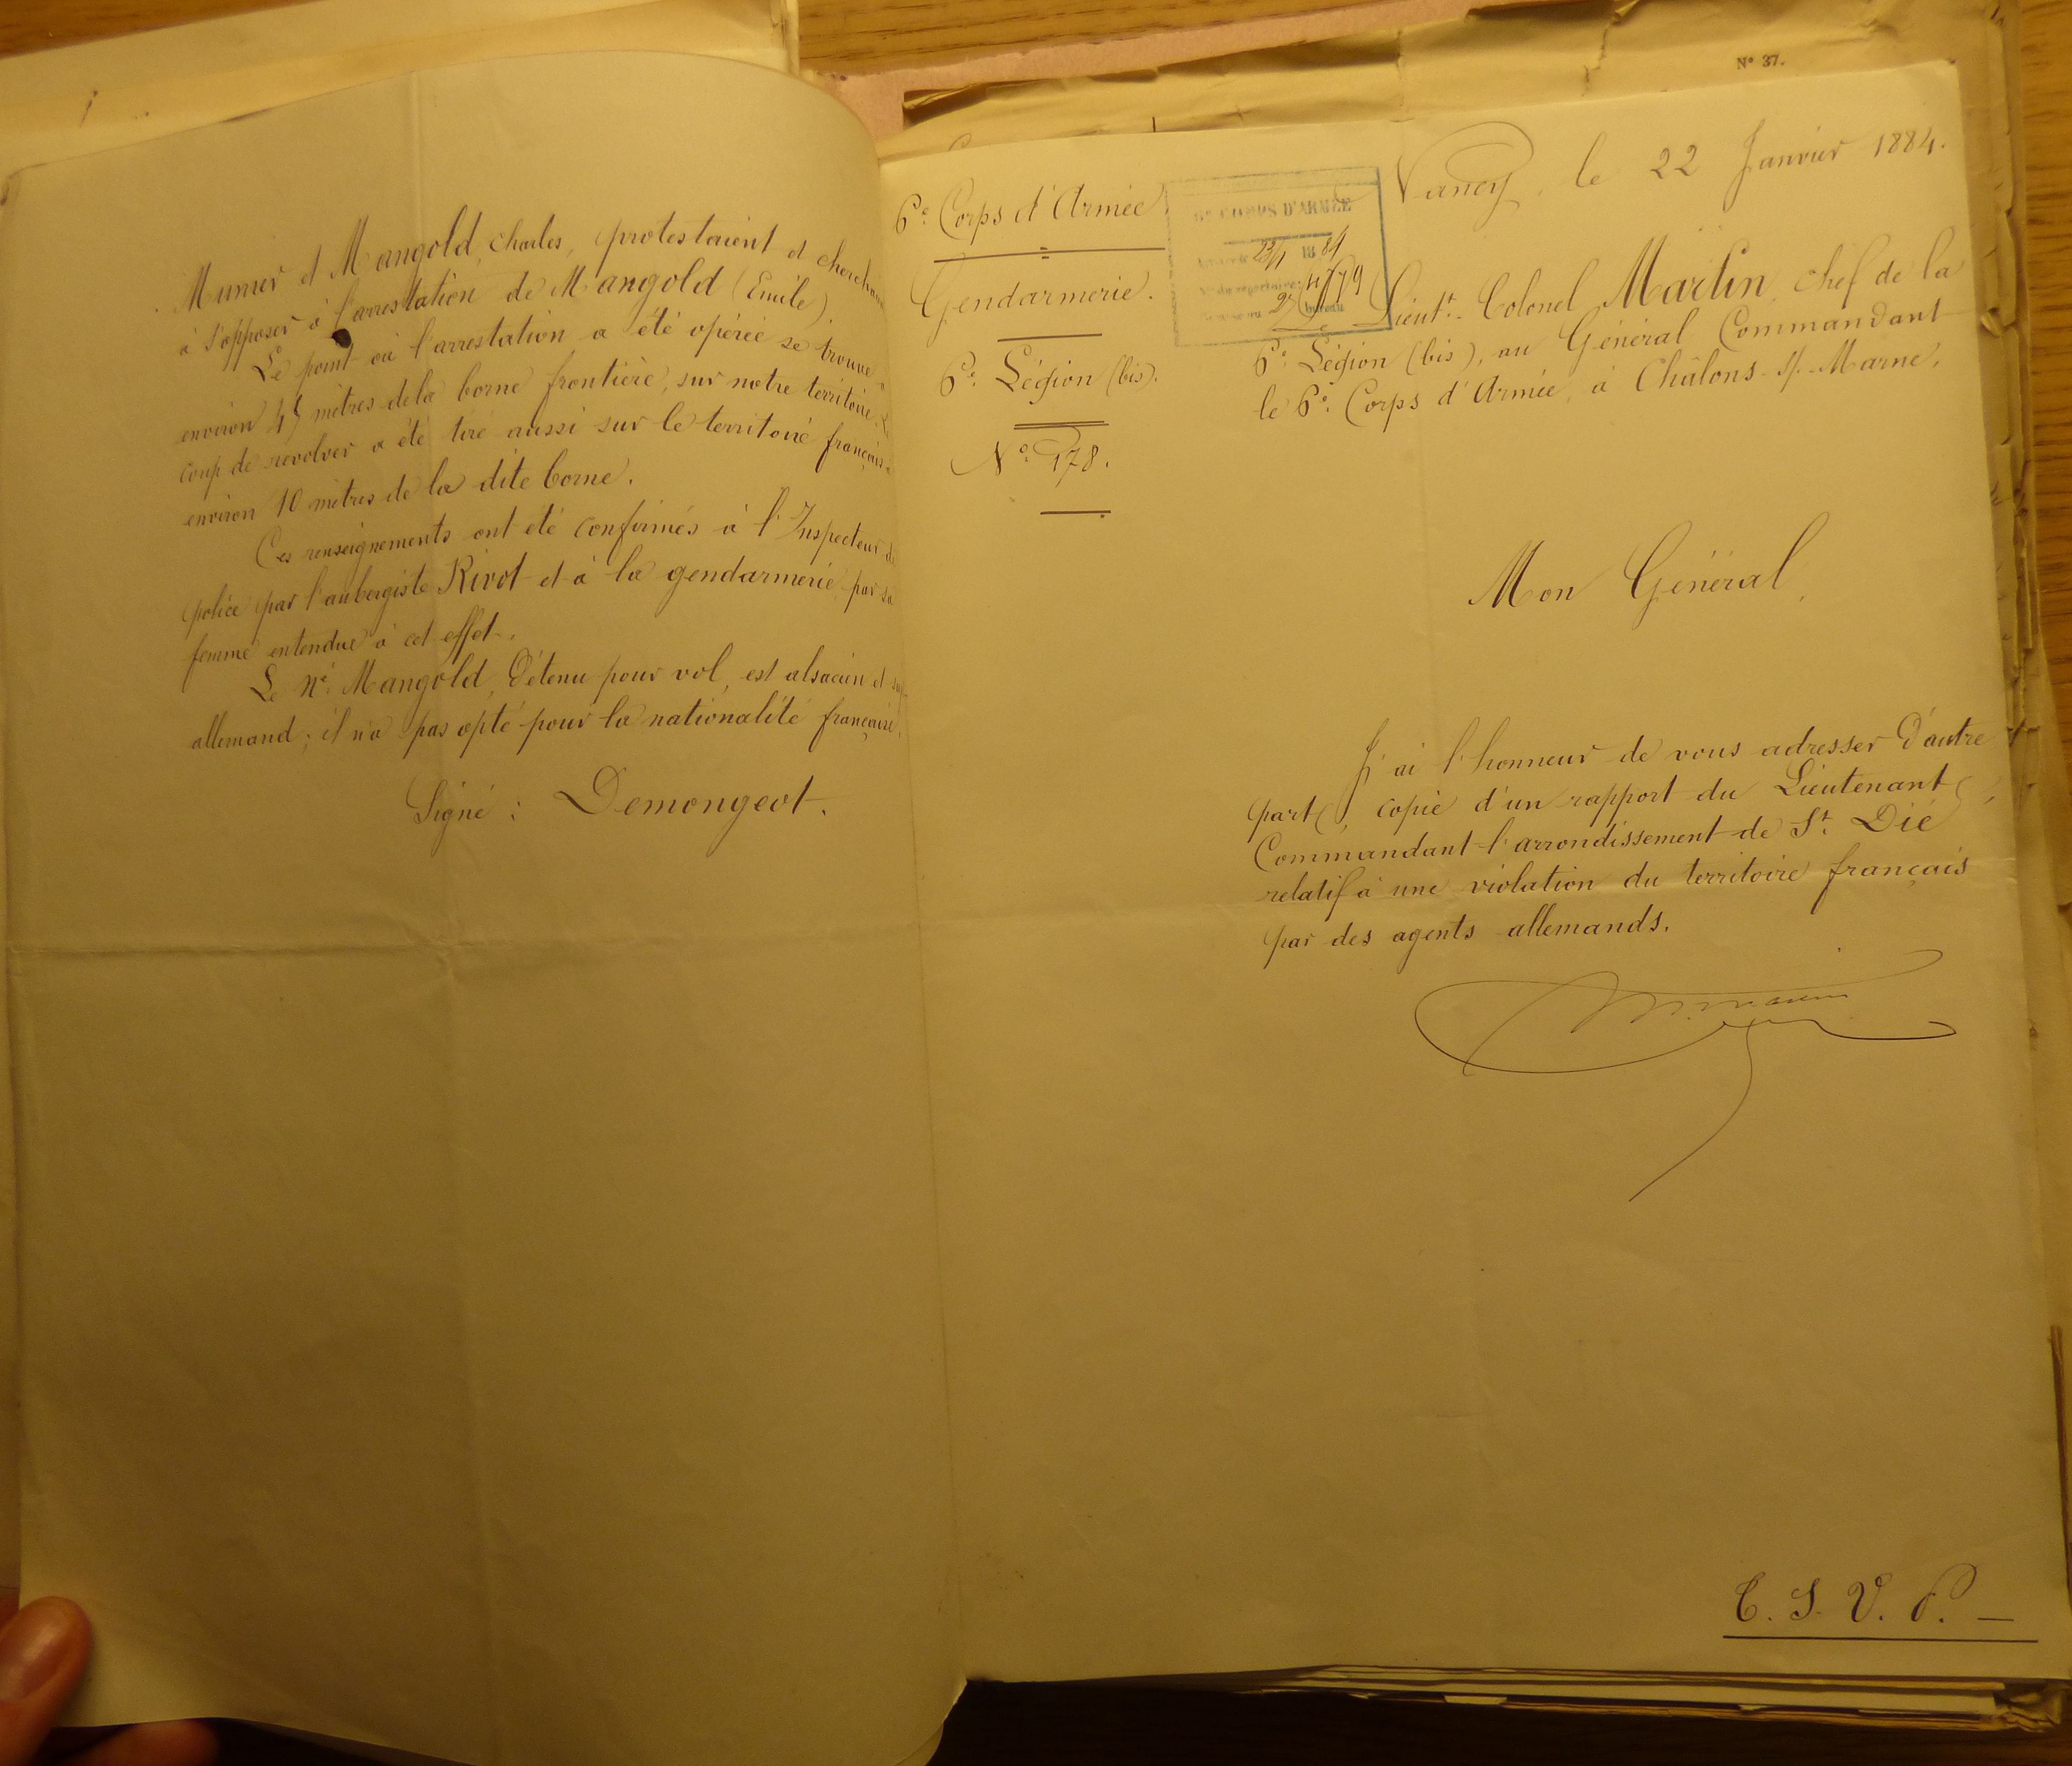 Munier et Mangold, Charles, protestaient et
à s'opposer à l'arrestation de Mangold (Emile).
Le point où l'arrestation a été opérée se trouve à
environ 45 mètres de la borne frontière, sur notre territoire. Le
coup de revolver a été tiré aussi sur le territoire français à
environ 10 mètres de la dite borne.
Ces renseignements ont été confirmés à l'Inspecteur de
police par l'aubergiste Rivot et à la gendarmerie, par sa
femme entendue à cet effet.
Le né Mangold, détenu pour vol, est alsacien et
allemand ; il n'a pas opté pour la nationalité française.
Signé : Demongeot.
N° 37.
6e Corps d'Armée
Gendarmerie.
6e Légion (bis).
N° 178.
CORPS D'ARMÉE
23/1 1884
Nancy, le 22 Janvier 1884.
Le Lieut.t Colonel Martin, chef de la
6e Légion (bis), au Général Commandant
le 6e Corps d'Armée, à Châlons-s/-Marne.
Mon Général,
J'ai l'honneur de vous adresser d'autre
part, copie d'un rapport du Lieutenant
Commandant l'arrondissement de St. Dié
relatif à une violation du territoire français
par des agents allemands.
T. S. V. P. —